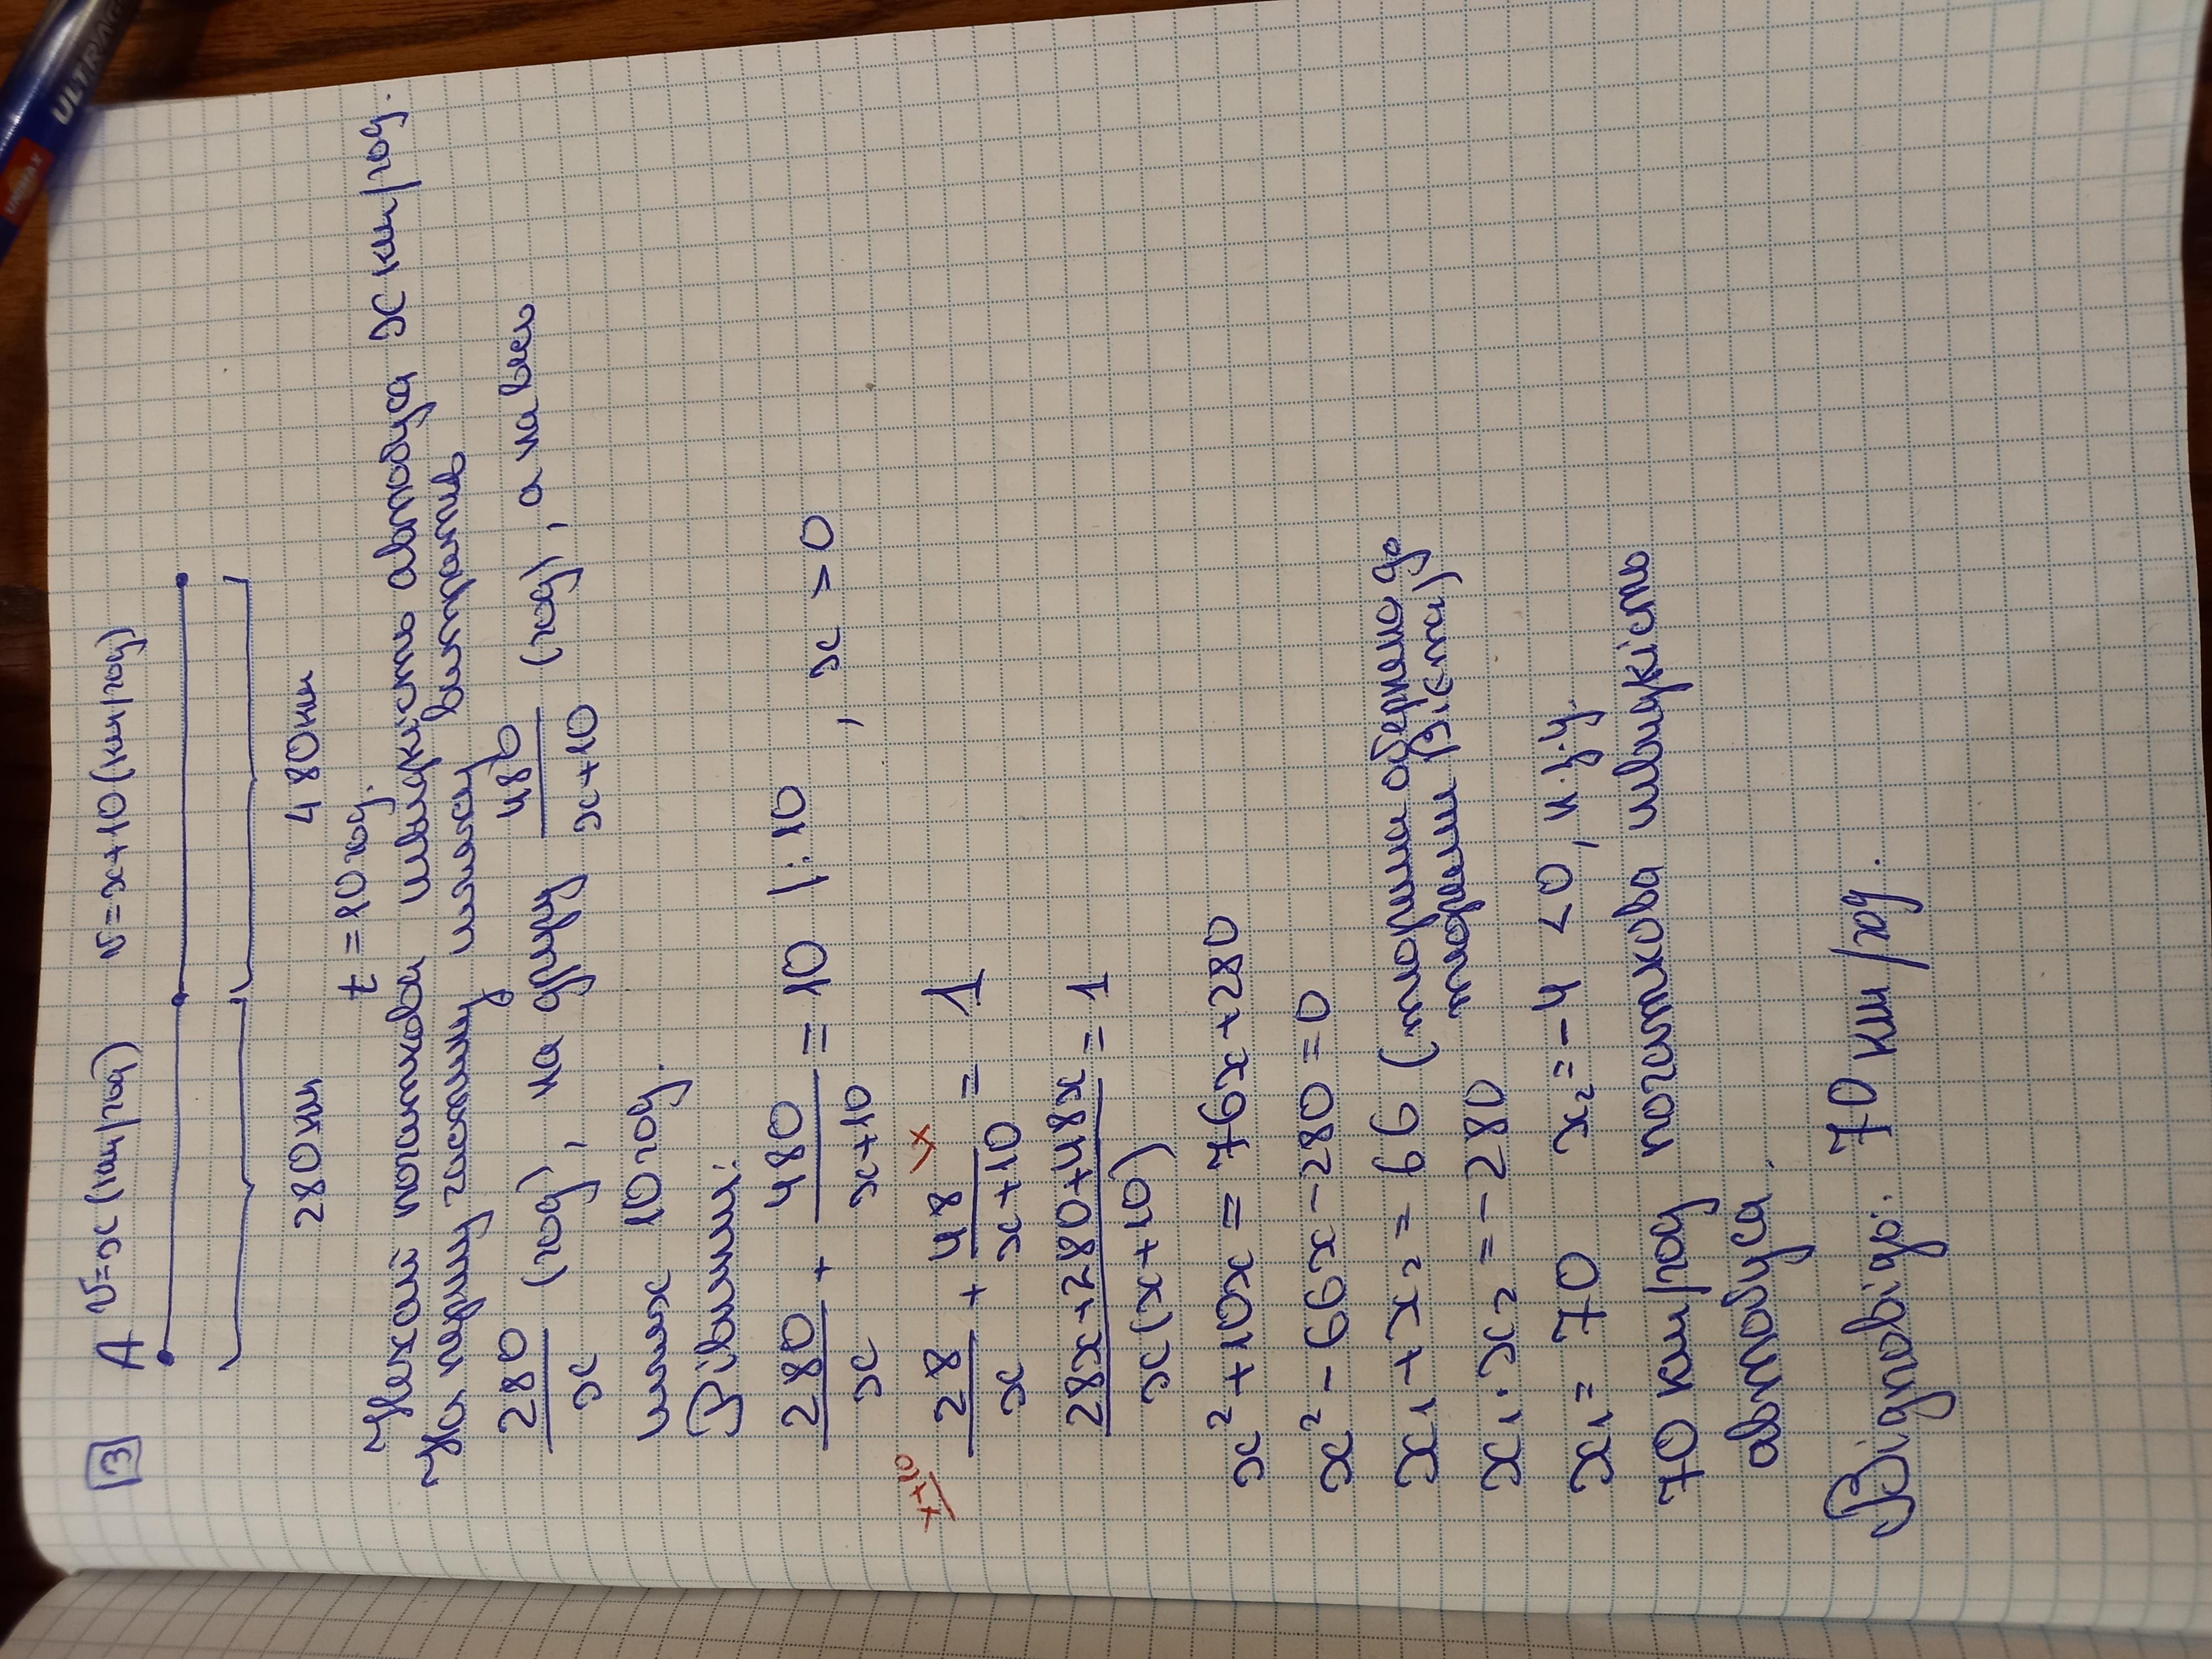 3 A v=x (км/год) v=x+10 (км/год)
280км 480км
t=10год.
Нехай початкова швидкість автобуса x км/год.
На першу частину шляху витратив
280/x (год), на другу 480/x+10 (год), а на весь
шлях 10 год.
Р-ння:
280/x + 480/x+10 = 10 |:10
x+10/ 28/x + x/ 48/x+10 = 1 , x > 0
28x+280+48x/x(x+10) = 1
x²+10x = 76x+280
x²-66x-280=0
x₁+x₂=66 (за теоремою оберненою до
теореми Вієта)
x₁·x₂=-280
x₁=70 x₂=-4 <0, н.з.у.
70 км/год початкова швидкість
автобуса.
Відповідь: 70 км/год.
UNIMAX ULTRAG